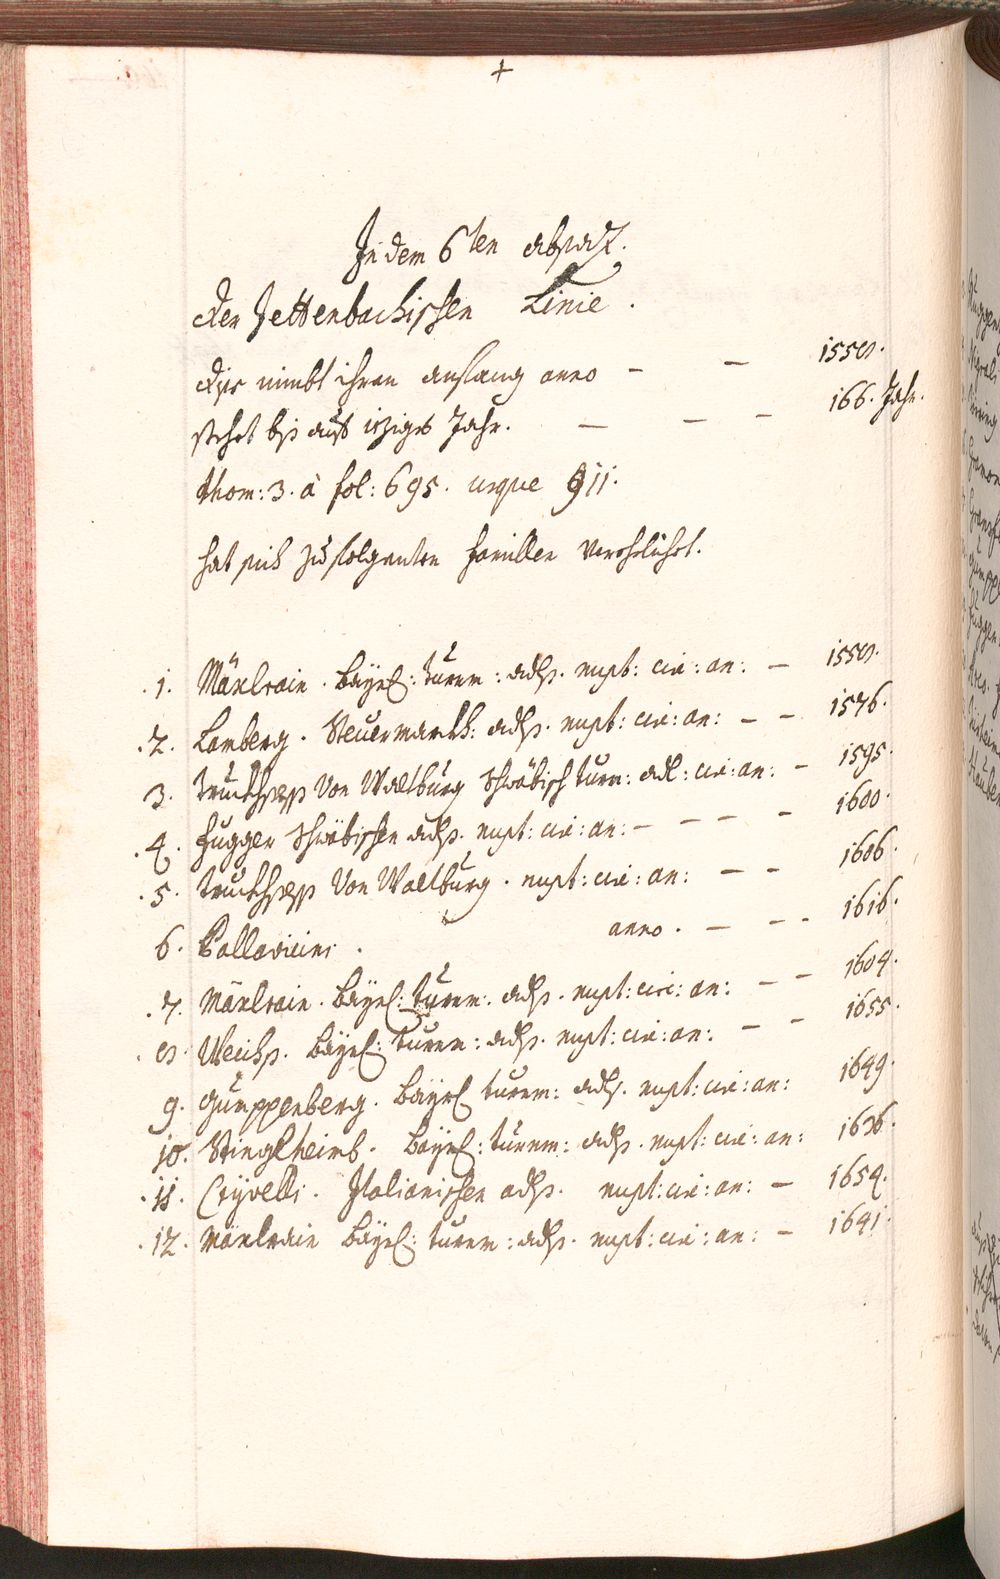 +
In dem 6ten absaz.
der Jettenbachischen Linie.
diße nimbt ihren anfang anno – – 1558.
stehet biß auf iziges Jahr. – – – 166. Jahr.
thom: 3. à fol: 695. usque 911.
hat sich zu folgenten Famillen verehelichet.
.1. Mäxlrain. Bäyrl: turnm: adls. nupt: cir: an: – 1558.
.2. Lamberg. Steüermarckh: adls. nupt: cir: an: – – 1576.
3. Truckhseß Von Waltburg Schwäbisch turn: adl: cir: an: – 1595.
.4. Fugger Schwäbischen adls. nupt: cir: an: – – – – 1600.
.5. Truckhseß Von Waltburg. nupt: cir: an: – – 1606.
6. Pallavicini. anno. – – – 1616.
.7. Mäxlrain. Bäyrl: turnm: adls. nupt: circ: an: – – 1604.
.8. Weichs. Bäyrl: turnm: adls. nupt: cir: an: – – 1655.
9. Gumppenberg. Bäyrl turnm: adls. nupt: cir: an: 1649.
10. Stinglheimb. Bäyrl: turnm: adls. nupt: cir: an: 1636.
.11. Cryvelli. Italianischen adls. nupt: cir: an: – 1654.
.12. Mäxlrain Bäyrl: turnm: adls. nupt: cir: an: – 1641.